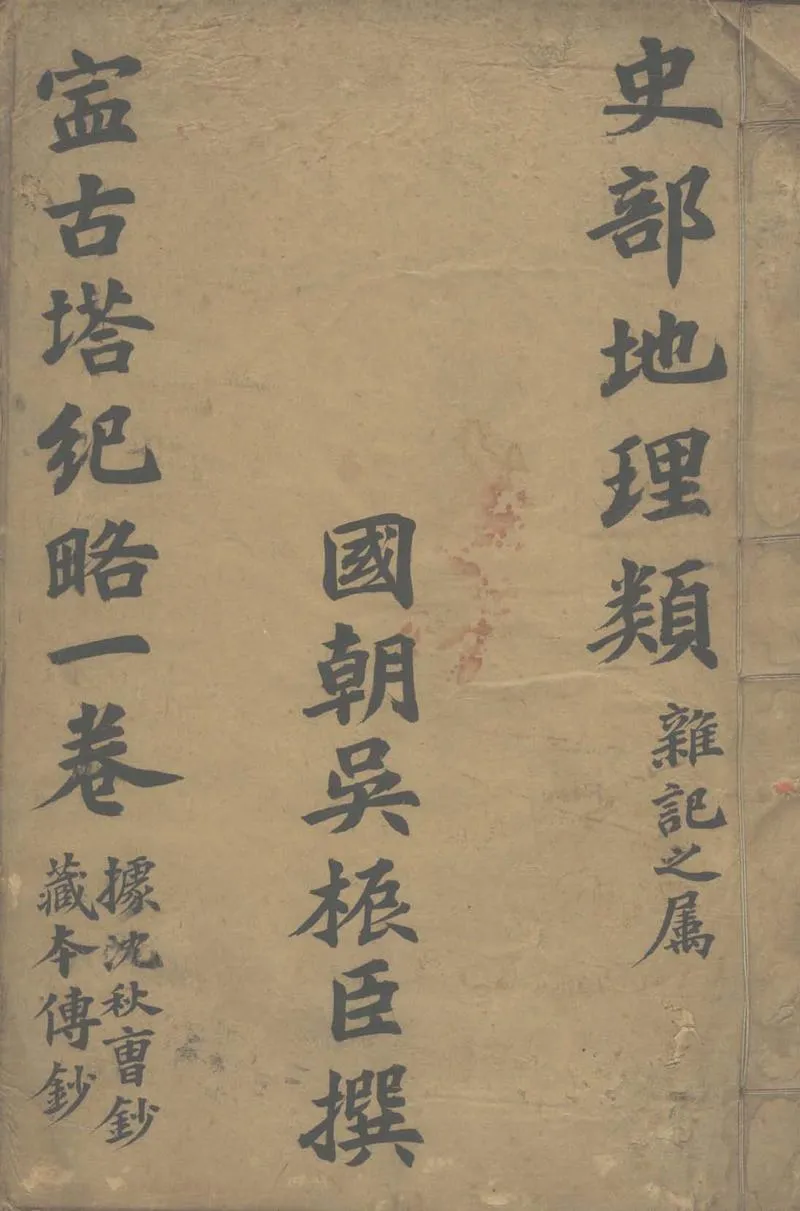 史部地理類 雜記之属
國朝吳桭臣撰
寍古塔紀略一卷
據沈秋曺鈔
藏本傳鈔